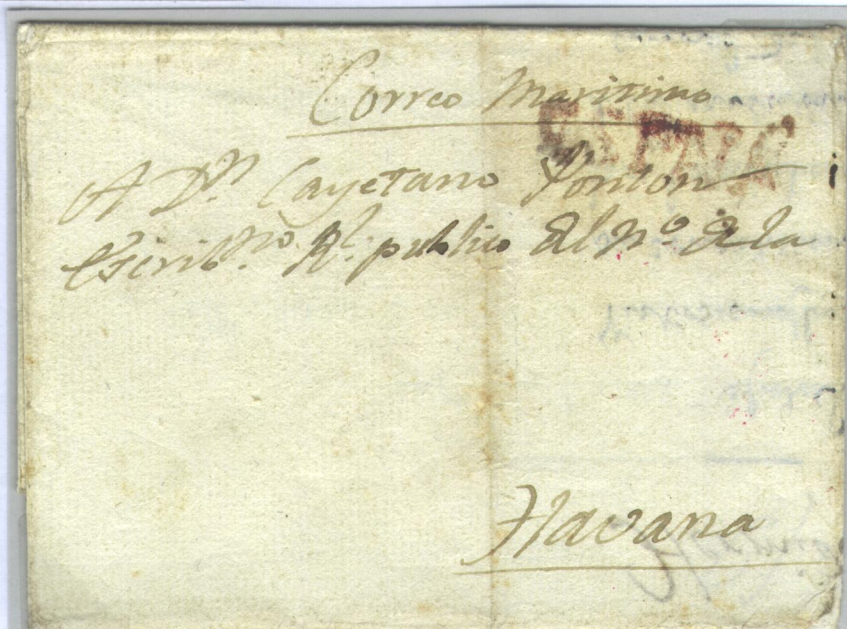 Correo Maritimo
A Dn. Cayetano Ponton
Escribno. Rl. publico del No. de la
Havana